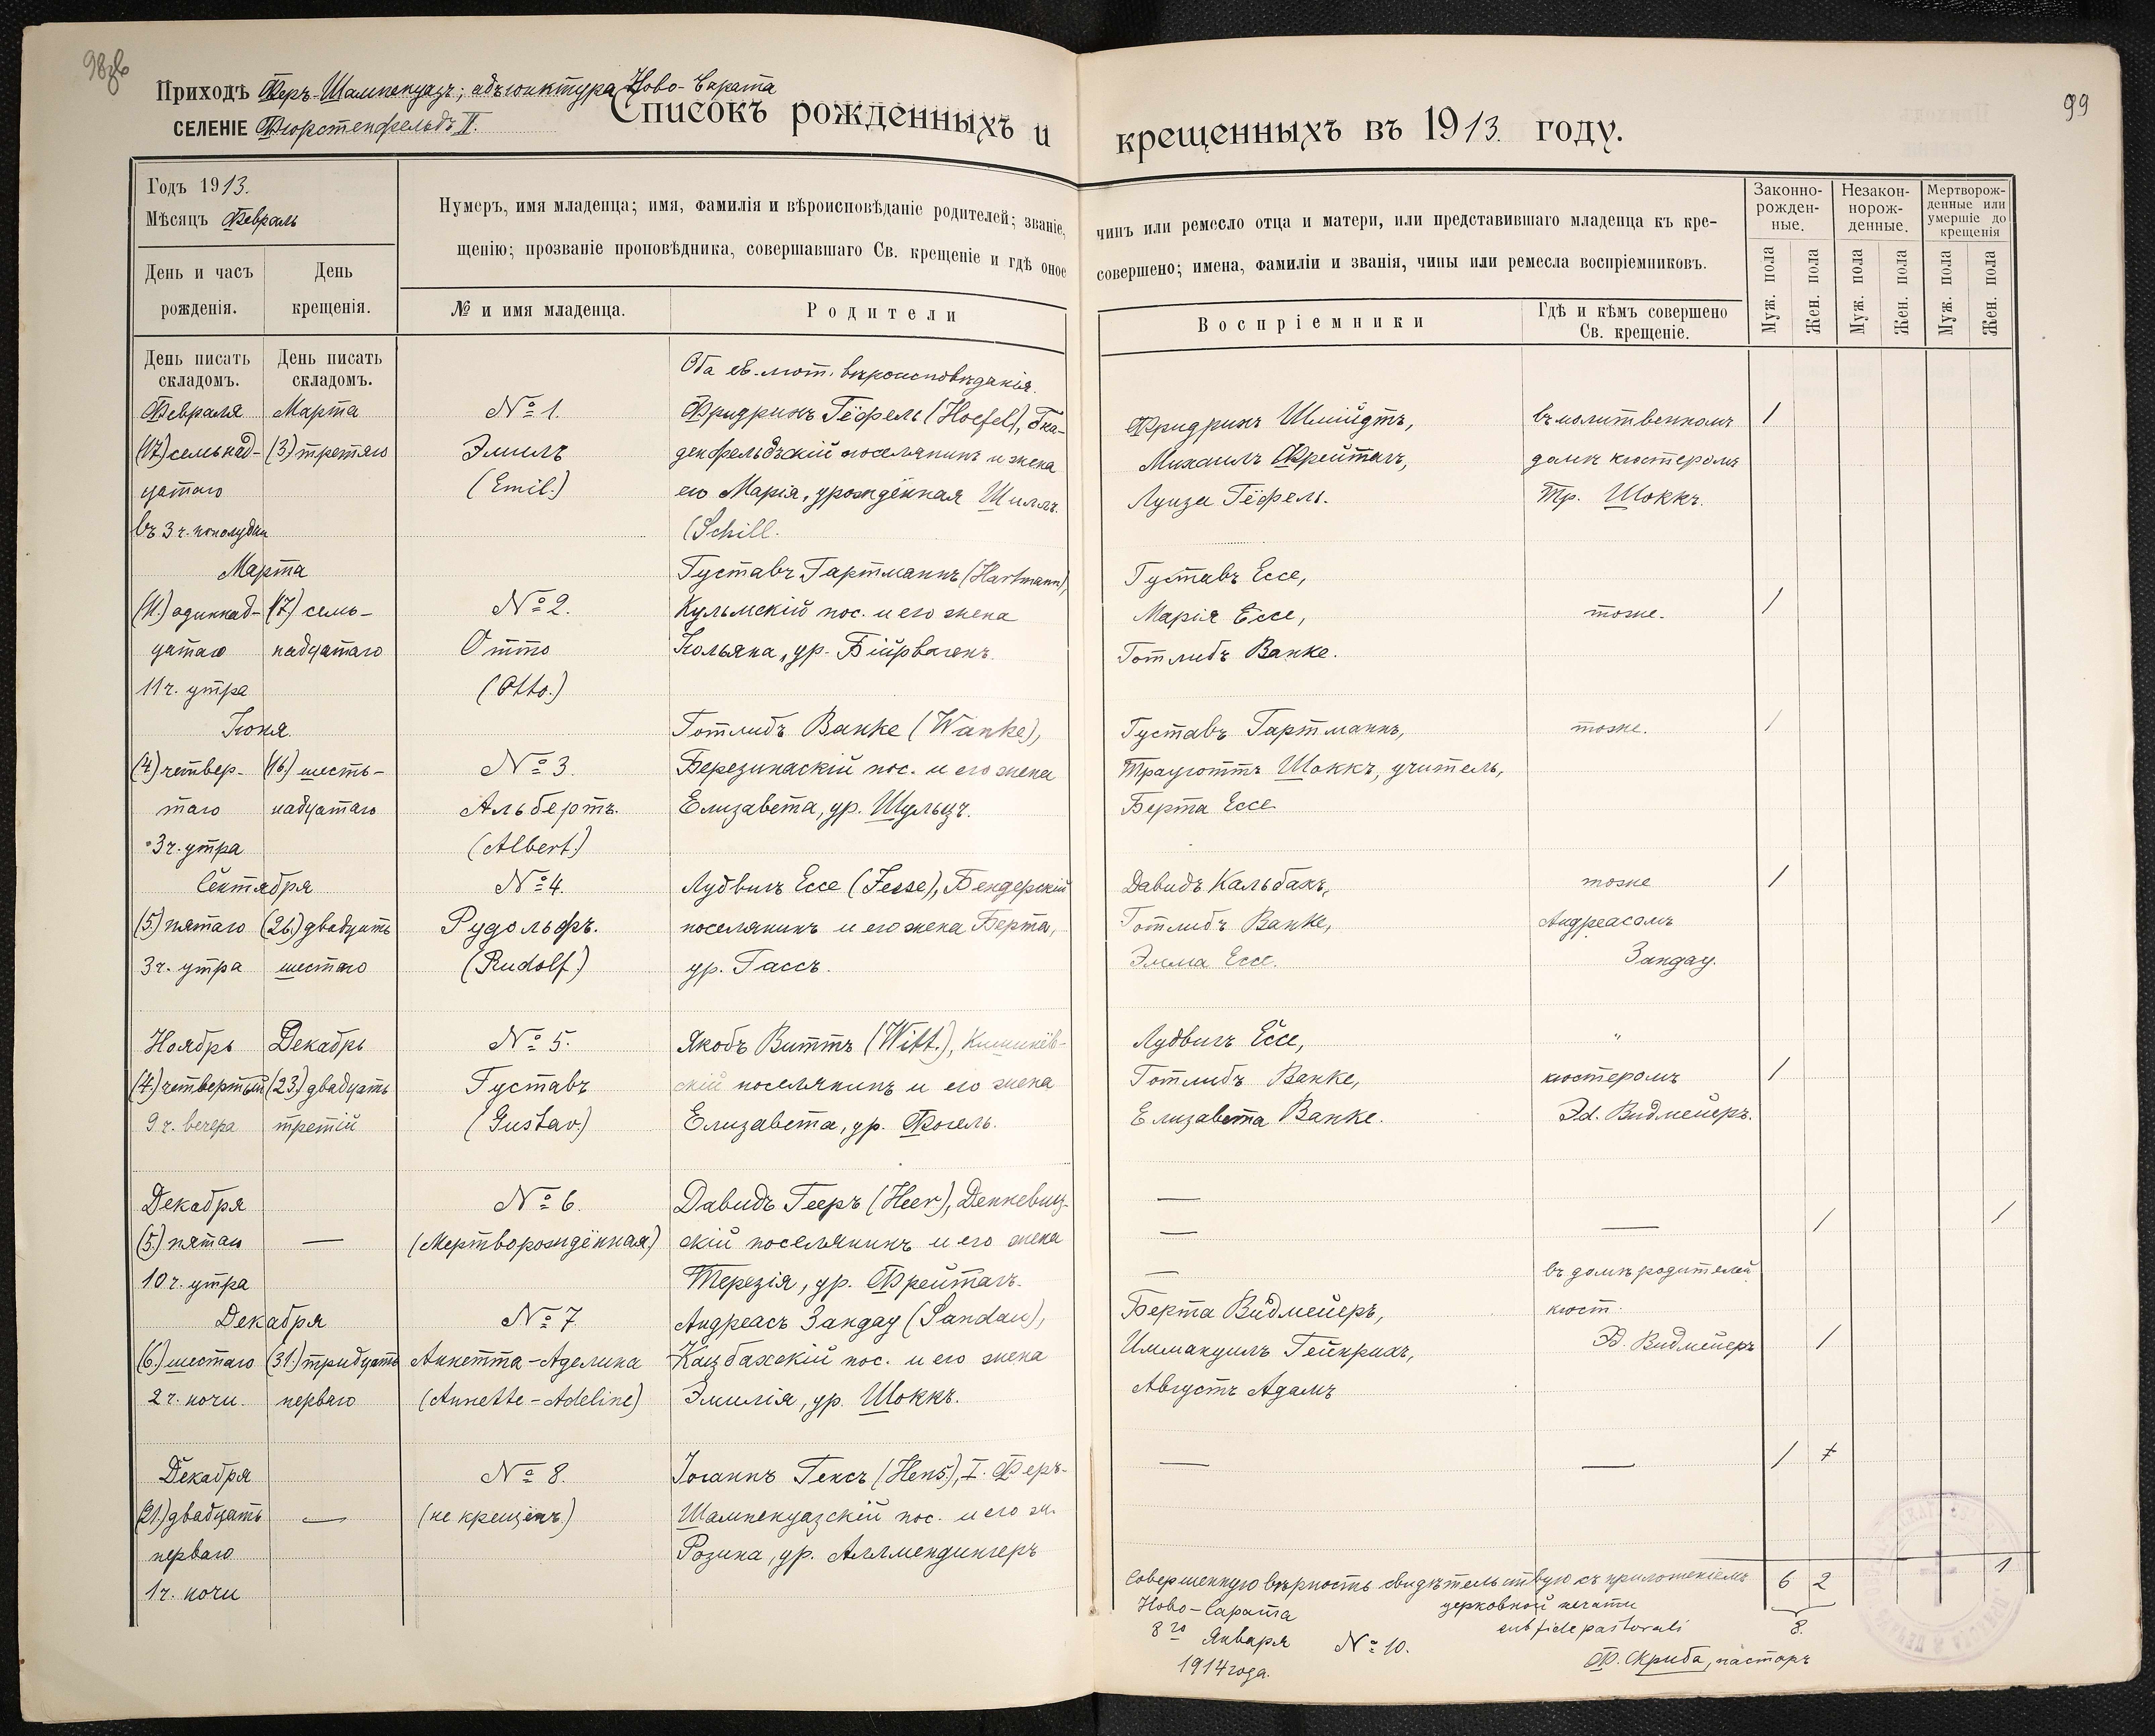 98об
99
Приходъ Феръ-Шампенуазъ; адъюнктура Ново-Сарата
селеніе Фюрстенфельдъ II.
Списокъ рожденныхъ и крещенныхъ въ 1913. году.
Годъ 1913.
Мѣсяцъ Февраль
Нумеръ, имя младенца; имя, фамилія и вѣроисповѣданіе родителей; званіе, чинъ или ремесло отца и матери, или представившаго младенца къ кре-
щенію; прозваніе проповѣдника, совершавшаго Св. крещеніе и гдѣ оное совершено; имена, фамиліи и званія, чины или ремесла воспріемниковъ.
Законно-
рожден-
ные.
Незакон-
норож-
денные.
Мертворож-
денные или
умершіе до
крещенія
День и часъ
рожденія.
День
крещенія.
№ и имя младенца.
Родители
Воспріемники
Гдѣ и кѣмъ совершено
Св. крещеніе.
Муж. пола
Жен. пола
Муж. пола
Жен. пола
Муж. пола
Жен. пола
День писать
складомъ.
День писать
складомъ.
Февраля
(17) семьнад-
цатаго
въ 3 ч. пополудни
Марта
(3) третяго
№ 1.
Эмилъ
(Emil.)
Оба ев.-лют. вѣроисповѣданія.
Фридрихъ Гёфель (Hoefel), Гна-
денфельдскій поселянинъ и жена
его Марія, урождённая Шиллъ.
(Schill.
Фридрихъ Шмидтъ,
Михаилъ Фрейтагъ,
Луиза Гёфель.
въ молитвенномъ
домѣ кюстеромъ
Тр. Шоккъ.
1
Марта
(11.) одиннад-
цатаго
11 ч. утра
(17.) семь-
надцатаго
№ 2.
Отто
(Otto.)
Густавъ Гартманнъ (Hartmann),
Кульмскій пос. и его жена
ур. Бійрвагенъ.
Густавъ Ессе,
Марія Ессе,
Готлибъ Ванке.
тоже.
1
Іюня.
(4) четвер-
таго
3 ч. утра
(16.) шесть-
надцатаго
№ 3.
Альбертъ.
(Albert.)
Готлибъ Ванке (Wanke),
Березинаскій пос. и его жена
Елизавета, ур. Шульцъ.
Густавъ Гартманнъ,
Трауготтъ Шоккъ, учитель,
Берта Ессе.
тоже.
1
Сентября
(5.) пятаго
3 ч. утра
(26.) двадцать
шестаго
№ 4.
Рудольфъ.
(Rudolf.)
Лудвигъ Ессе (Jesse), Бендерскій
поселянинъ и его жена Берта,
ур. Гассъ.
Давидъ Кальбахъ,
Готлибъ Ванке,
Эмма Ессе.
тоже
Андреасомъ
Зандау.
1
Ноябрь
(4.) четвертый
9 ч. вечера
Декабрь
(23.) двадцать
третій
№ 5.
Густавъ
(Gustav.)
Якобъ Виттъ (Witt.), Кишинёв-
скій поселянинъ и его жена
Елизавета, ур. Фогель.
Лудвигъ Ессе,
Готлибъ Ванке,
Елизавета Ванке.
"
кюстеромъ
Эд. Видмейеръ.
1
Декабря
(5.) пятаго
10 ч. утра
—
№ 6.
(Мертворождённая.)
Давидъ Гееръ (Heer), Денневиц-
скій поселянинъ и его жена
Терезія, ур. Фрейтагъ.
—
—
—
—
1
1
Декабря
(6.) шестаго
2 ч. ночи.
(31.) тридцать
перваго
№ 7.
Аннетта-Аделина
(Annette-Adeline)
Андреасъ Зандау (Sandau),
Кацбахскій пос. и его жена
Эмилія, ур. Шоккъ.
Берта Видмейеръ,
Иммануилъ Гейнрихъ,
Августъ Адамъ
въ домѣ родителей
кюст.
Э. Видмейеръ
1
Декабря
(21.) двадцать
перваго
1 ч. ночи
—
№ 8.
(не крещёнъ.)
Іоганнъ Генсъ (Hens.), I. Феръ-
Шампенуазскій пос. и его ж.
Розина, ур. Аллмендингеръ
—
—
1
6 2 1
8.
Совершенную вѣрность свидѣтельствую съ приложеніемъ
церковной печати
Ново-Сарата
8го Января
1914 года.
№ 10.
sub fide pastorali
Ф. Скриба, пасторъ